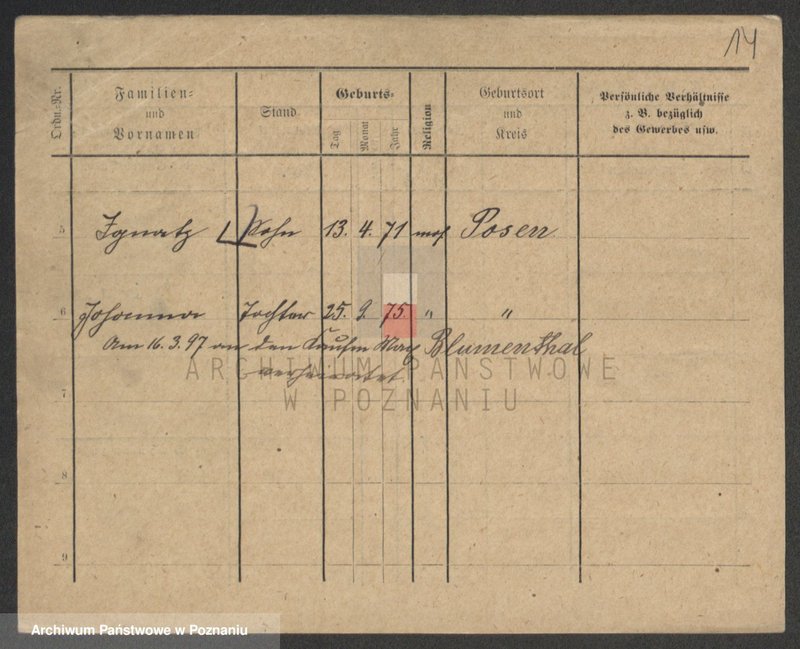 14
Ordn.-Nr.
Familien- und Vornamen
Stand
Geburts-
Tag
Monat
Jahr
Religion
Geburtsort und Kreis
Persönliche Verhältnisse z. B. bezüglich des Gewerbes usw.
5 Ignatz Sohn 13. 4. 71 mos Posen
6 Johanna Tochter 25. 9. 75. " "
Am 16.3.97 an den Kaufm Max Blumenthal
verheiratet
7
8
9
ARCHIWUM PAŃSTWOWE
W POZNANIU
Archiwum Państwowe w Poznaniu